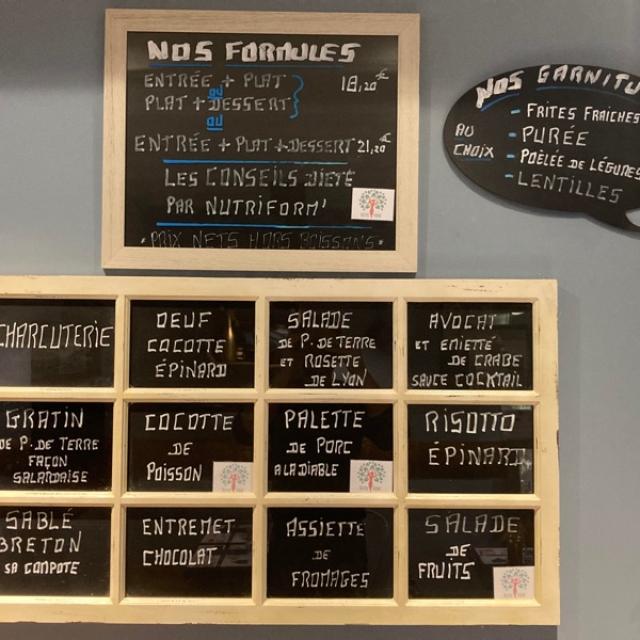 NOS FORMULES
ENTRÉE + PLAT 18,20€
ou
PLAT + DESSERT
ou
ENTRÉE + PLAT + DESSERT 21,20€
LES CONSEILS DIETE
PAR NUTRIFORM'
• PRIX NETS HORS BOISSONS •
NOS GARNITU
AU
CHOIX
- FRITES FRAICHES
- PURÉE
- POÊLÉE DE LÉGUMES
- LENTILLES
CHARCUTERIE
OEUF
COCOTTE
ÉPINARD
SALADE
DE P. DE TERRE
ET ROSETTE
DE LYON
AVOCAT
ET EMIETTÉ
DE CRABE
SAUCE COCKTAIL
GRATIN
DE P. DE TERRE
FAÇON
SALARDAISE
COCOTTE
DE
POISSON
PALETTE
DE PORC
A LA DIABLE
RISOTTO
ÉPINARD
SABLÉ
BRETON
SA COMPOTE
ENTREMET
CHOCOLAT
ASSIETTE
DE
FROMAGES
SALADE
DE
FRUITS